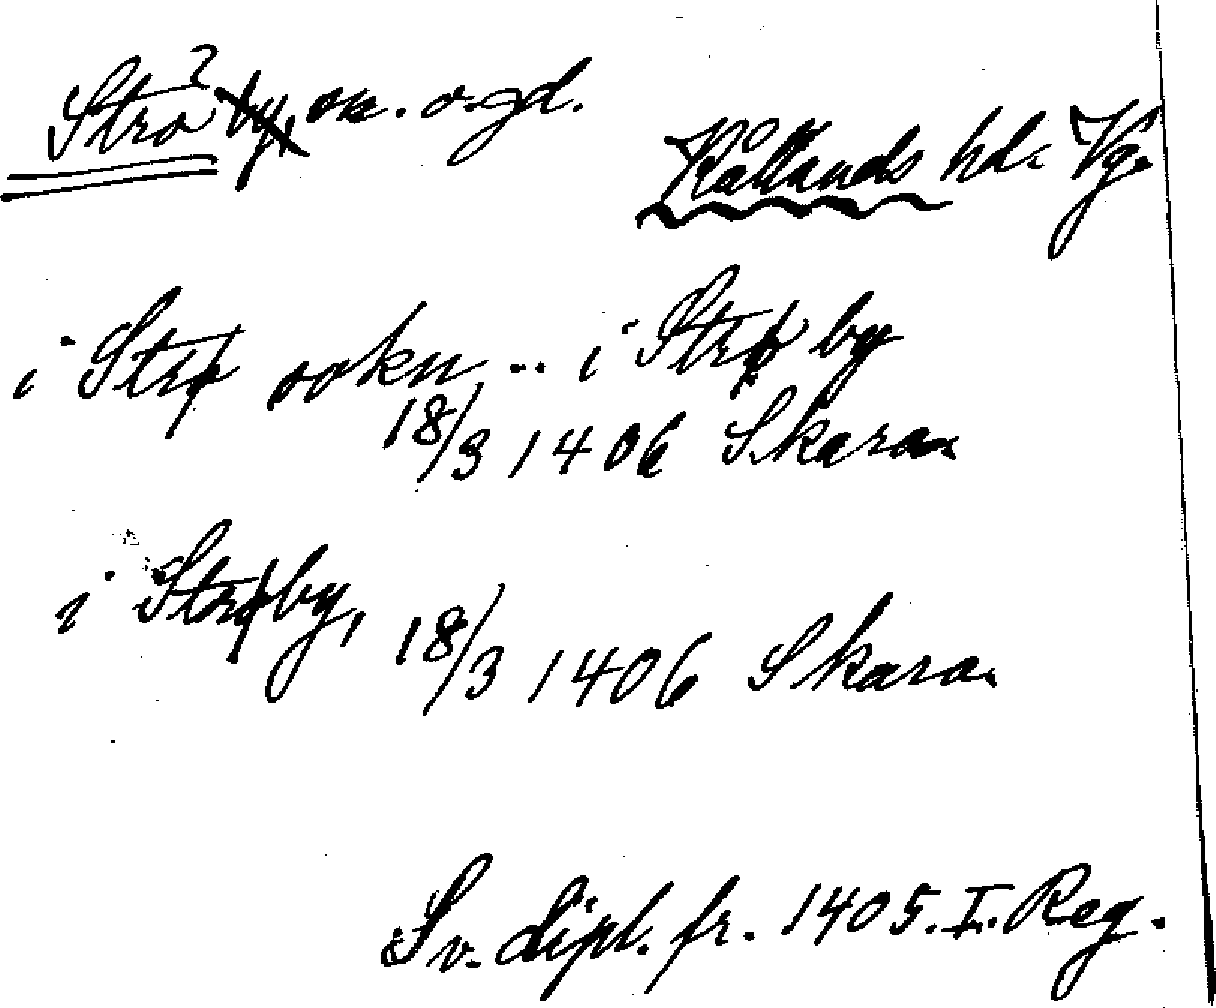 Strö by, sn. o. gd.
Kållands hd. Vg.
i Strø sokn... i Strø by
18/3 1406 Skara.
i Strøby, 18/3 1406 Skara.
Sv. dipl. fr. 1405. I. Reg.